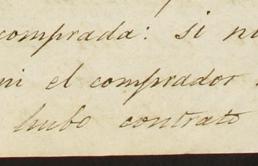 comprada: si n
ni el comprador
hubo contrato